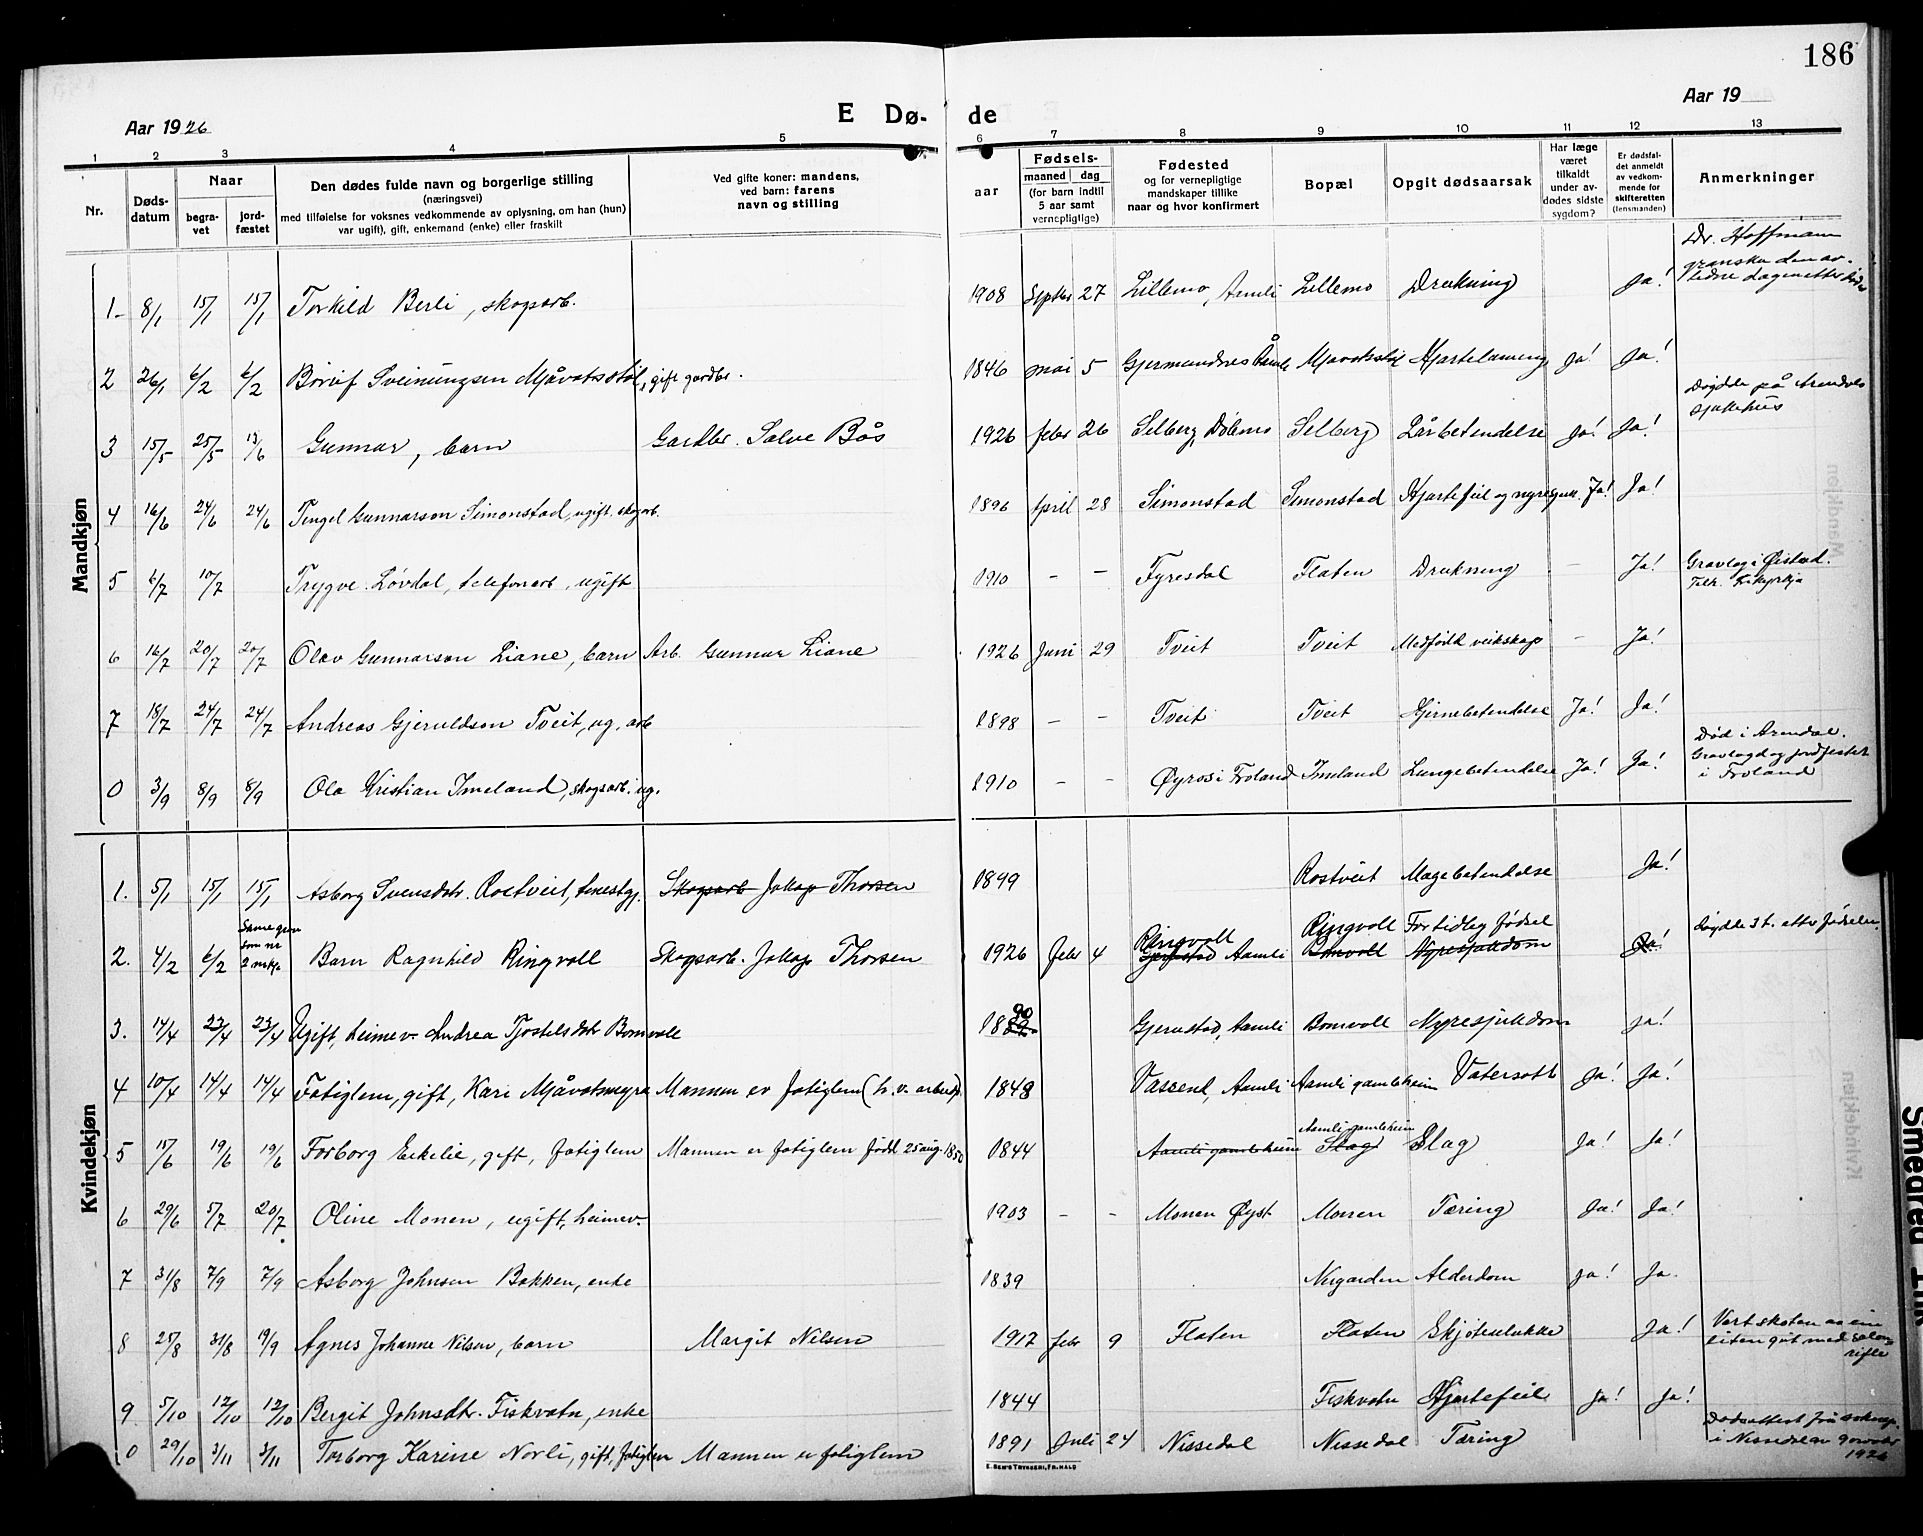 186
E Dø- de
Aar 1926
Aar 19
1 2 3 4 5 6 7 8 9 10 11 12 13
Nr.
Døds-
datum
Naar
begra-
vet
jord-
fæstet
Den dødes fulde navn og borgerlige stilling
(næringsvei)
med tilføielse for voksnes vedkommende av oplysning, om han (hun)
var ugift), gift, enkemand (enke) eller fraskilt
Ved gifte koner: mandens,
ved barn: farens
navn og stilling
aar
Fødsels-
maaned dag
(for barn indtil
5 aar samt
vernepligtige)
Fødested
og for vernepligtige
mandskaper tillike
naar og hvor konfirmert
Bopæl
Opgit dødsaarsak
Har læge
været
tilkaldt
under av-
dødes sidste
sygdom?
Er dødsfal-
det anmeldt
av vedkom-
mende for
skifteretten
(lensmanden)
Anmerkninger
Mandkjøn
Dr. Hoffmann
granska den av-
lidne dagen etter
1 8/1 15/1 15/1 Torkild Berli, skogsarb. 1908 Septbr 27 Lillemo, Aamli Lillemo Drukning Ja!
2 26/1 6/2 6/2 Sveinungsen Mjåvatsstøl, gift gardbr. 1846 mai 5 Aamli Mjavatsstøl Hjartelameng Ja! Ja!
Døydde på Arendals
sjukehus
3 15/5 25/5 13/6 Gunnar, barn Gardbr. Salve Bås 1926 febr 26 Selberg, Dølemo Selberg Ja! Ja!
4 16/6 24/6 24/6 Tengel Gunnarson Simonstad, ugift. skogarb. 1896 April 28 Simonstad Simonstad Hjartefeil og Ja! Ja!
5 6/7 10/7 Trygve Løvdal, telefonarb, ugift 1910 - - Fyresdal Flaten Drukning - Ja! Gravlag i Øistad.
6 16/7 20/7 20/7 Olav Gunnarson Liane, barn Arb. Gunnar Liane 1926 Juni 29 Tveit Tveit Medfødd veikskap - Ja!
7 18/7 24/7 24/7 Andreas Gjeruldson Tveit, ug. arb 1898 - - Tveit Tveit Hjernebetendelse Ja! Ja!
Død i Arendal.
Gravlagd og jordfestet
i Froland
0 3/9 8/9 8/9 Ola Kristian Imeland, skogsarb. ug. 1910 - - Øyrosi Froland Imeland Lungebetendelse Ja! Ja!
Kvindekjøn
1. 5/1 15/1 15/1 Asborg Svensdotr. Rostveit, tenestgj. Skogsarb Jakop Thorsen 1899 Rostveit Magebetendelse Ja!
Same gong
som nr
2 Ringvoll Ringvoll Fortidleg fødsel Døydde 3 t. etter fødselen.
2. 4/2 6/2 Barn Ragnhild Ringvoll Skogsarb. Jakop Thorsen 1926 febr 4 Gjerustad Aamli Bomvoll Nyresjukdom Ja!
3. 14/4 23/4 23/4 Ugift, heimev. Andrea Tjøstelsdotr Bomvoll 1889 90 Gjerustad, Aamli Bomvoll Nyresjukdom Ja!
4 10/4 14/4 14/4 Fatiglem, gift, Kari Måvatsmyra Mannen er fatiglem (h. v. arbeid). 1848 Vassend, Aamli Aamli gamleheim Vatersott Ja! Ja!
Aamli gamleheim
5 15/6 19/6 19/6 Torborg Eikelie, gift, fatiglem Mannen er fatiglem født 25 aug. 1850 1844 Aamli gamleheim Slag Slag Ja! Ja!
6 29/6 5/7 20/7 Oline Monen, ugift, heimev. 1903 - - Monen Øyst. Monen Tæring Ja! Ja!
7 31/8 7/9 7/9 Asborg Johnsen Bakken, enke 1839 Nigarden Alderdom Ja! Ja.
8 25/8 31/8 19/9 Agnes Johanne Nilsen, barn Margit Nilsen 1917 febr 9 Flaten Flaten Skjoteulukke Ja! Vart skoten av ein
liten gut med salong
rifle
9. 5/10 12/10 12/10 Bergit Johnsdtr. Fiskvatn, enke 1844 Fiskvatn Hjartefeil Ja! Ja!
0 29/10 3/11 3/11 Torborg Karine Norli, gift, fatiglem Mannen er fatiglem 1891 Juli 24 Nissedal Nissedal Tæring Dødsattest frå
i Nissedal
1926
E. SEM'S TRYKKERI, FR.HALD